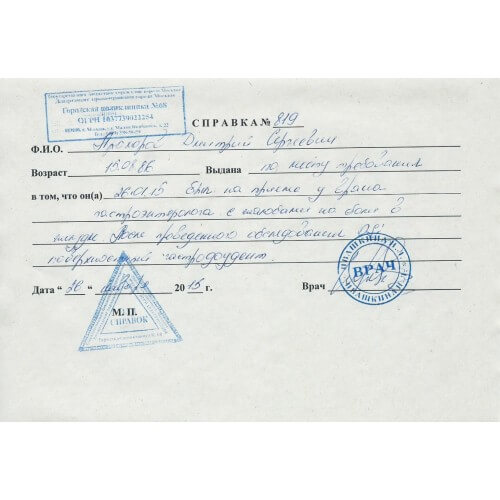 Государственное бюджетное учреждение города Москвы
Департамент здравоохранения города Москвы
Городская поликлиника №68
ОГРН 1037739021254
СПРАВКА № 819
Ф.И.О. Прохоров Дмитрий Сергеевич
Возраст 13.08.86 Выдана по месту требования
в том, что он(а) 26.01.15 был на приеме у врача
гастроэнтеролога с жалобами на боли в
желудке. После проведенного обследования DS:
поверхностный гастродуоденит.
Дата " 26 " января 2015 г. Врач
ВРАЧ
М. П.
СПРАВОК